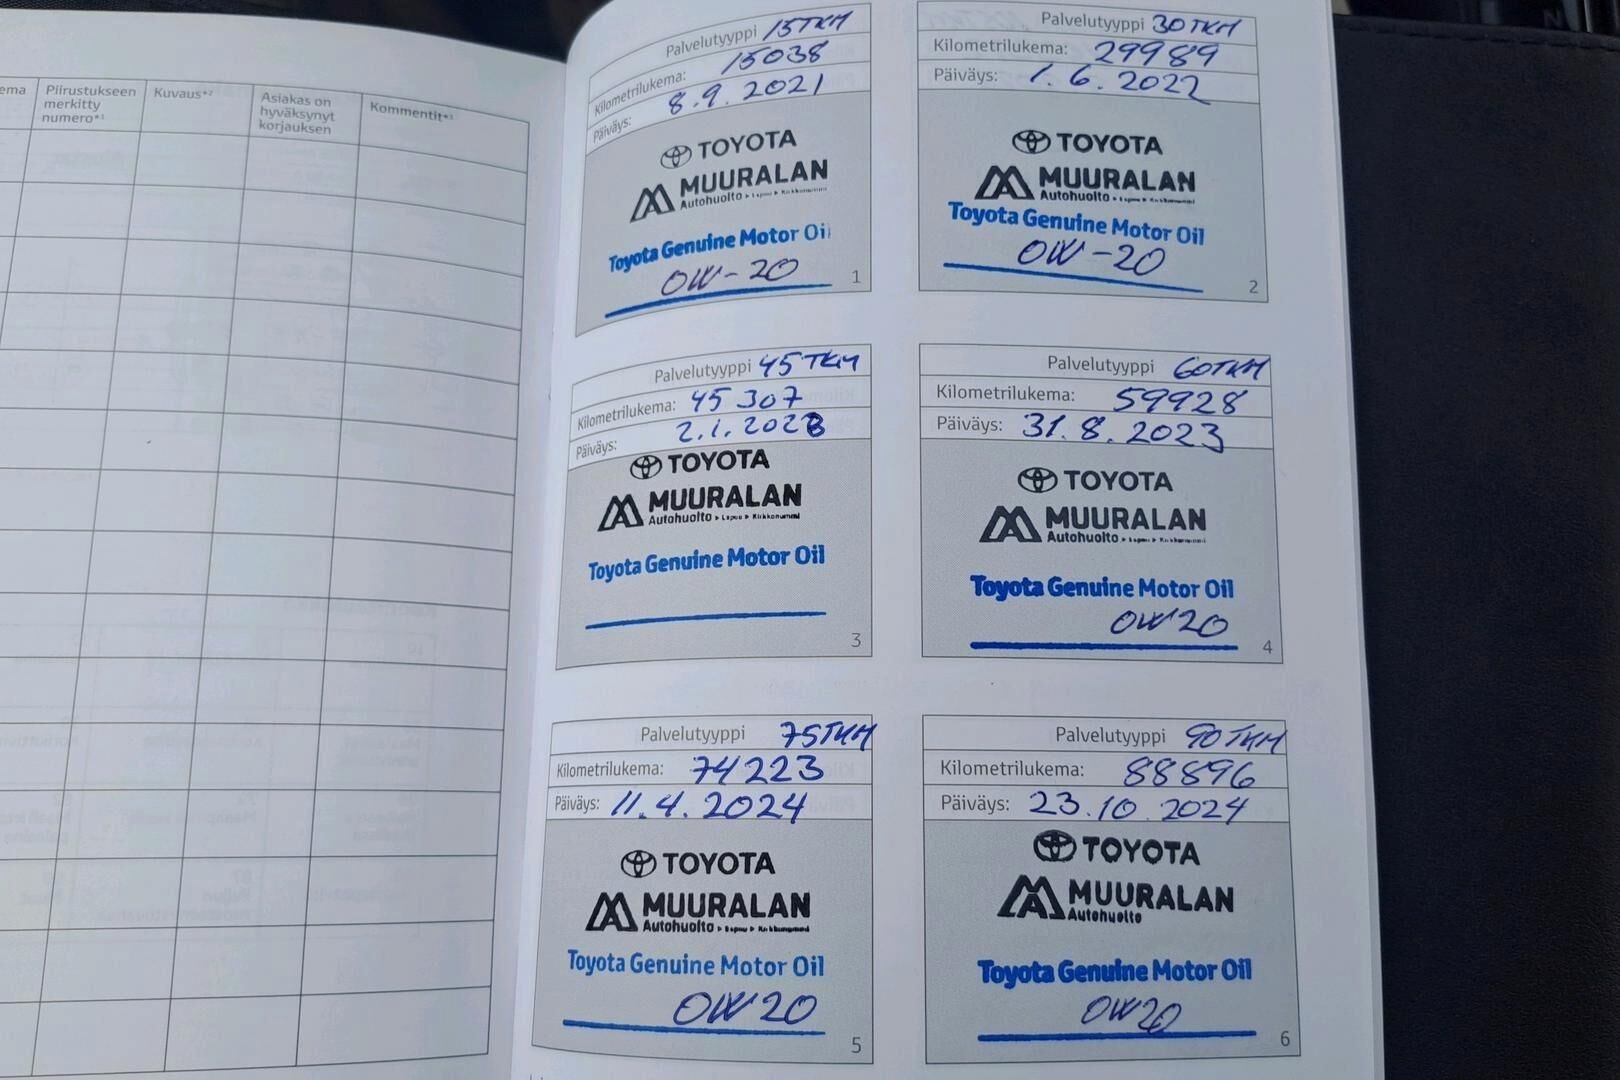 ema
Piirustukseen
merkitty
numero*1
Kuvaus*2
Asiakas on
hyväksynyt
korjauksen
Kommentit*3
Palvelutyyppi 15TKM
Kilometrilukema: 15038
Päiväys: 8.9.2021
TOYOTA
MUURALAN
Autohuolto ▸ Lapua ▸ Kirkkonummi
Toyota Genuine Motor Oil
0W-20
1
Palvelutyyppi 30TKM
Kilometrilukema: 29989
Päiväys: 1.6.2022
TOYOTA
MUURALAN
Autohuolto ▸ Lapua ▸ Kirkkonummi
Toyota Genuine Motor Oil
0W-20
2
Palvelutyyppi 45TKM
Kilometrilukema: 45307
Päiväys: 2.1.2023
TOYOTA
MUURALAN
Autohuolto ▸ Lapua ▸ Kirkkonummi
Toyota Genuine Motor Oil
3
Palvelutyyppi 60TKM
Kilometrilukema: 59928
Päiväys: 31.8.2023
TOYOTA
MUURALAN
Autohuolto ▸ Lapua ▸ Kirkkonummi
Toyota Genuine Motor Oil
0W20
4
Palvelutyyppi 75TKM
Kilometrilukema: 74223
Päiväys: 11.4.2024
TOYOTA
MUURALAN
Autohuolto ▸ Lapua ▸ Kirkkonummi
Toyota Genuine Motor Oil
0W20
5
Palvelutyyppi 90TKM
Kilometrilukema: 88896
Päiväys: 23.10.2024
TOYOTA
MUURALAN
Autohuolto
Toyota Genuine Motor Oil
0W20
6